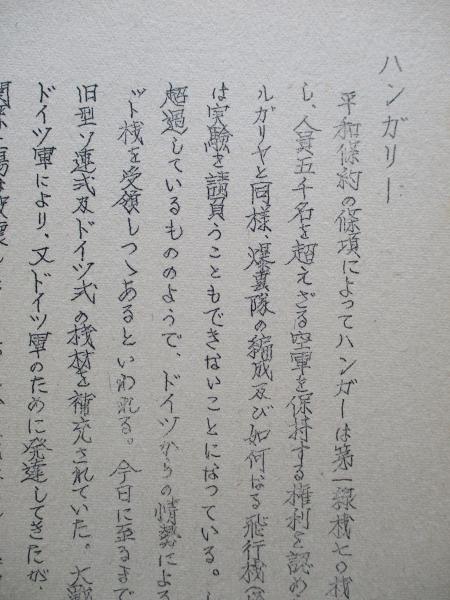 ハンガリー
平和條約の條項によってハンガーは第一線機七〇機
し、人員五千名を超えざる空軍を保持する権利を認め
ルガリヤと同様、爆撃隊の編成及び如何なる飛行機
は実験を請負うこともできないことになっている。
超過しているもののようで、ドイツからの情勢による
ット機を受領しつゝあるといわれる。今日に至るまで
旧型ソ連式及ドイツ式の機材を補充されていた。大戦
ドイツ軍により、又ドイツ軍のために発達してきたが、